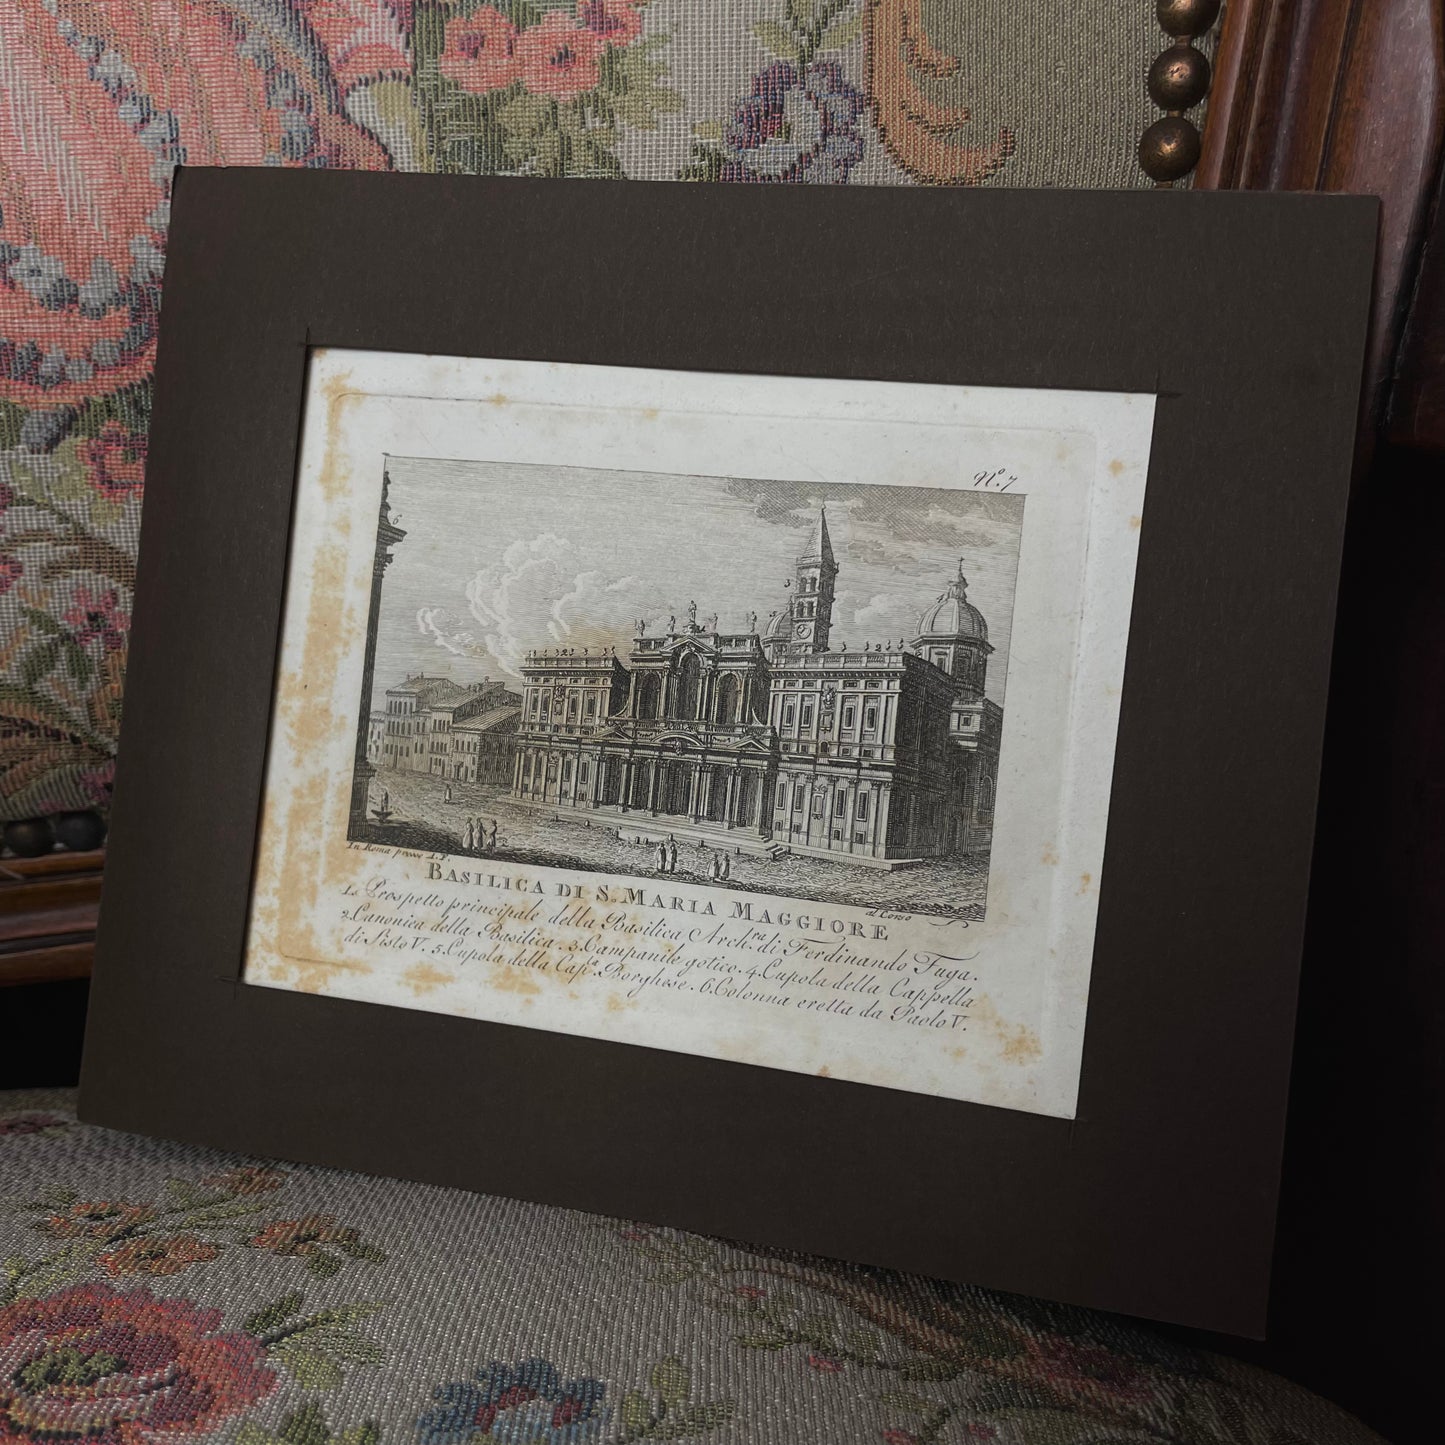 N.º 7
6
3
5
4
2
1
2
In Roma presso A.F.
al Corso
BASILICA DI S. MARIA MAGGIORE
1. Prospetto principale della Basilica Arch.ra di Ferdinando Fuga.
2. Canonica della Basilica. 3. Campanile gotico. 4. Cupola della Cappella
di Sisto V. 5. Cupola della Cap.a Borghese. 6. Colonna eretta da Paolo V.